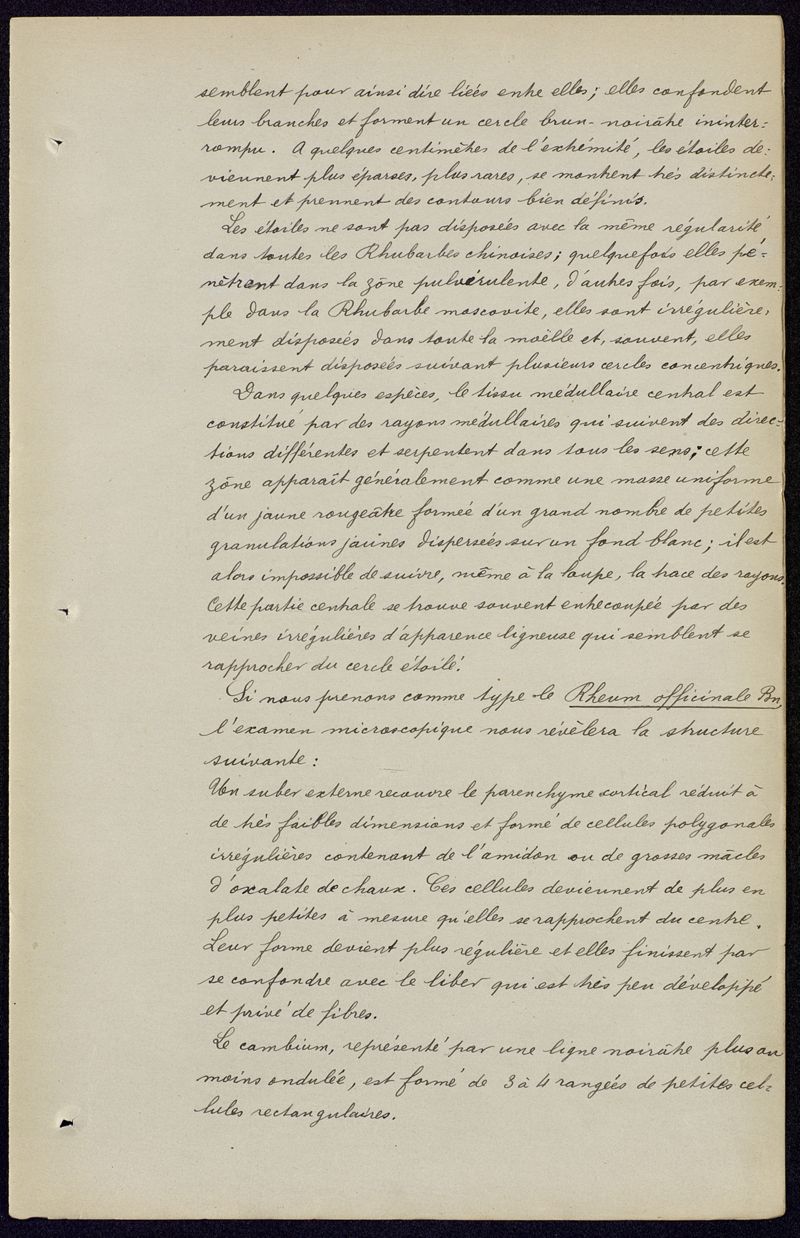 semblent pour ainsi dire liées entre elles; elles confondent
leurs branches et forment un cercle brun-noirâtre ininter=
rompu. A quelques centimètres de l'extrémité, les étoiles de=
viennent plus éparses, plus rares, se montrent très distincte=
ment et prennent des contours bien définis.
Les étoiles ne sont pas disposées avec la même régularité
dans toutes les Rhubarbes chinoises; quelquefois elles pé=
nètrent dans la zône pulvérulente, d'autres fois, par exem=
ple dans la Rhubarbe moscovite, elles sont irrégulière=
ment disposées dans toute la moëlle et, souvent, elles
paraissent disposées suivant plusieurs cercles concentriques.
Dans quelques espèces, le tissu médullaire central est
constitué par des rayons médullaires qui suivent des direc=
tions différentes et serpentent dans tous les sens; cette
zône apparaît généralement comme une masse uniforme
d'un jaune rougeâtre formée d'un grand nombre de petites
granulations jaunes dispersées sur un fond blanc; il est
alors impossible de suivre, même à la loupe, la trace des rayons.
Cette partie centrale se trouve souvent entrecoupée par des
veines irrégulières d'apparence ligneuse qui semblent se
rapprocher du cercle étoilé.
Si nous prenons comme type le Rheum officinale Bn,
l'examen microscopique nous révèlera la structure
suivante:
Un suber externe recouvre le parenchyme cortical réduit à
de très faibles dimensions et formé de cellules polygonales
irrégulières contenant de l'amidon ou de grosses mâcles
d'oxalate de chaux. Ces cellules deviennent de plus en
plus petites à mesure qu'elles se rapprochent du centre.
Leur forme devient plus régulière et elles finissent par
se confondre avec le liber qui est très peu développé
et privé de fibres.
Le cambium, représenté par une ligne noirâtre plus ou
moins ondulée, est formé de 3 à 4 rangées de petites cel=
lules rectangulaires.